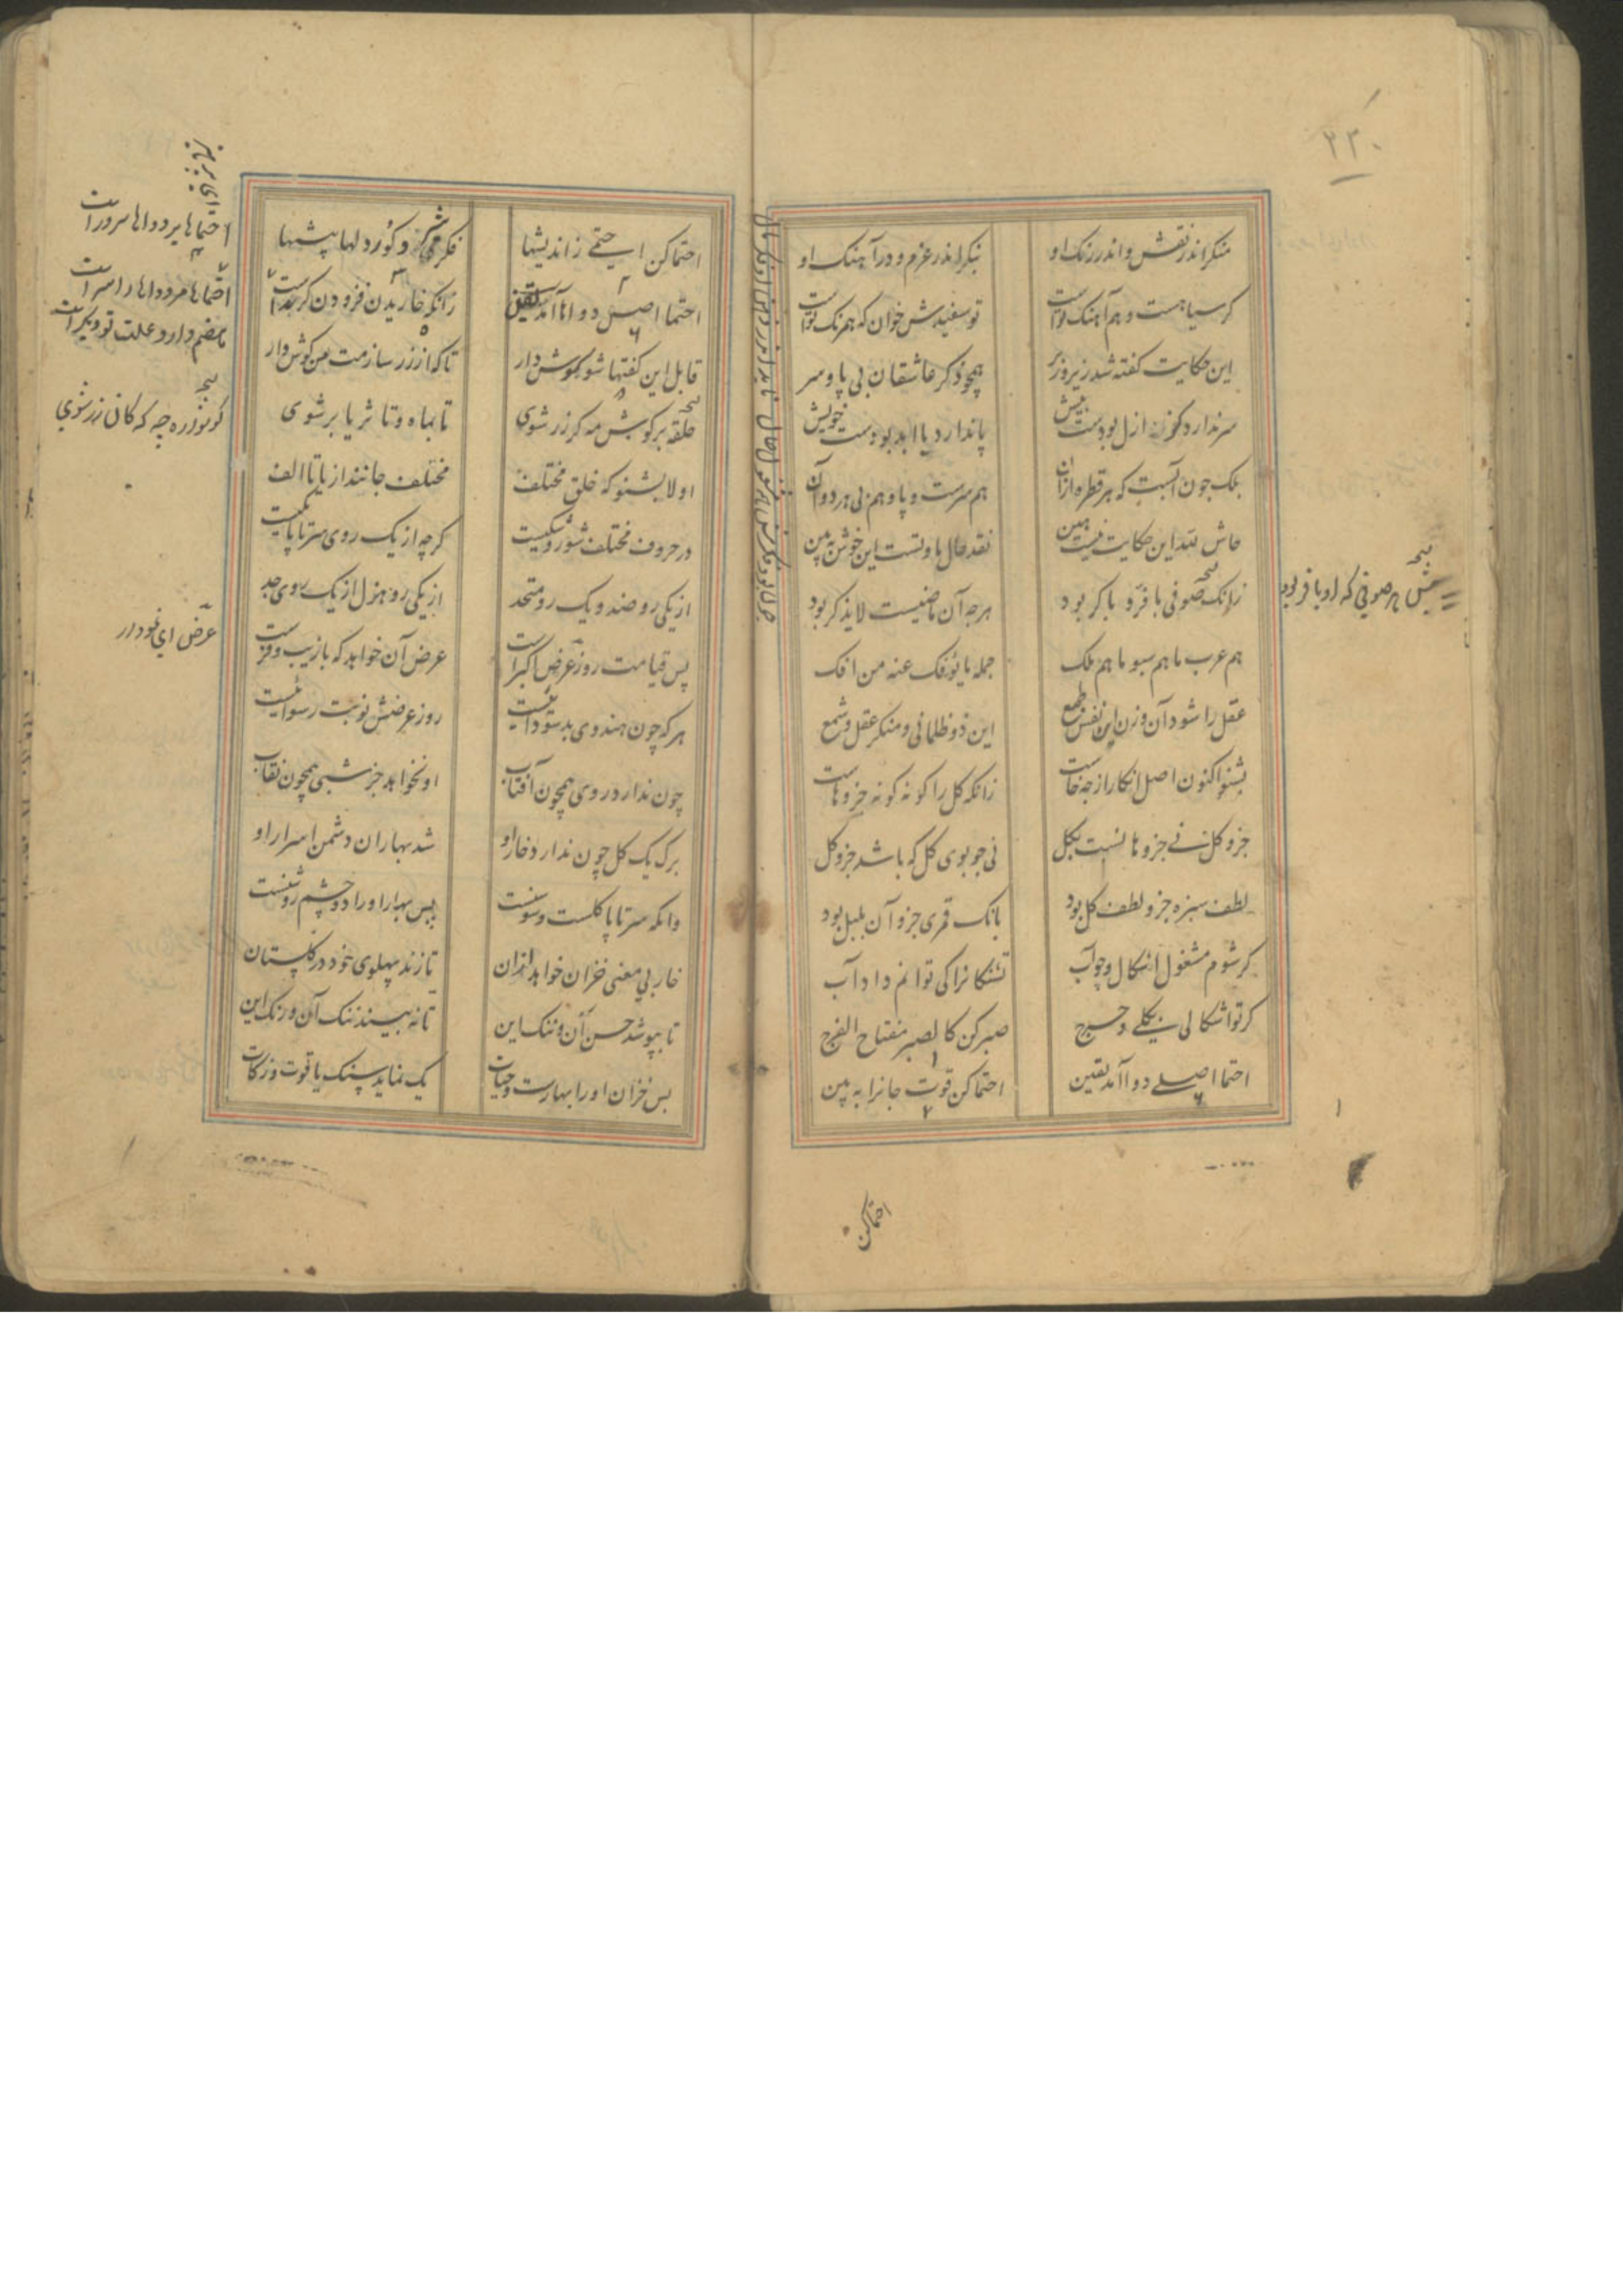 ۲۲۰
منکر اندر نقش و اندر رنک او بنکر اندر عزم و در آهنک او
کر سیاهست و هم آهنک تواست تو سفیدش خوان که همرنک تواست
این حکایت کفته شد زیر و زبر همچو ذکر عاشقان بی پا و سر
سر ندارد کز ازل بودست پیش پا ندارد با ابد بودست خویش
بلک چون آبست که هر قطره ازان هم سرست و پا و هم بی هر دو آن
حاش لله این حکایت نیست هین نقد حال ما و تست این خوش ببین
زانک صوفی با فر و با کر بود هرچه آن ماضیست لا یذکر بود
هم عرب ما هم سبو ما هم ملک جمله ما یؤفک عنه من افک
عقل را شو دان و زن این نفس و طمع این دو ظلمانی و منکر عقل و شمع
بشنو اکنون اصل انکار از چه خاست زانکه کل را کونه کونه جزوهاست
جزو کل نی جزوها نسبت بکل نی چو بوی کل که باشد جزو کل
لطف سبزه جزو لطف کل بود بانک قمری جزو آن بلبل بود
کر شوم مشغول اشکال و جواب تشنکانرا کی توانم داد آب
کر تو اشکالی بکلی و حرج صبر کن کالصبر مفتاح الفرج
احتما اصل دوا آمد یقین احتما کن قوت جانرا ببین
نسخه
پیش هر صوفی که او با فر بود
احتما کن
احتما کن احتمی ز اندیشها فکر شیر و کور و دلها بیشها
احتما اصل دواها آمد یقین زانکه خاریدن فزودن کرست
قابل این کفتها شو کوش دار تا که از زر سازمت من کوش وار
حلقه بر کوش مه کر زر شوی تا بماه و تا ثریا بر شوی
اولا بشنو که خلق مختلف مختلف جانند از یا تا الف
در حروف مختلف شور و شکیست کرچه از یک روی سر تا پا یکیست
از یکی رو ضد و یک رو متحد از یکی رو هزل از یک روی جد
پس قیامت روز عرض اکبر است عرض آن خواهد که با زیب و فرست
هرکه چون هندوی بد سوداییست روز عرضش نوبت رسواییست
چون ندارد روی همچون آفتاب او نخواهد جز شبی همچون نقاب
برک یک کل چون ندارد خار او شد بهاران دشمن اسرار او
وانکه سر تا پا کلست و سوسنست پس بهار او را دو چشم روشنست
خار بی معنی خزان خواهد خزان تا زند پهلوی خود در کلستان
تا بپوشد حسن آن و ننک این تا نه بیند ننک آن و رنک این
پس خزان او را بهارست و حیات یک نماید سنک یاقوت و زکات
احتماها بر دواها سرور است
احتماها مر دواها را سر است
هضم دارد علت تو دیکر است
نسخه
کوشواره چه که کان زر شوی
عرض ای خودار